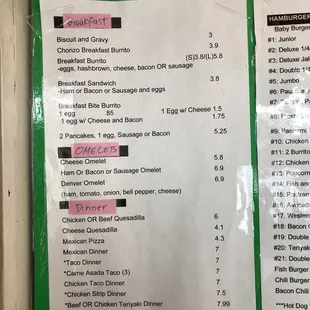 Breakfast
Biscuit and Gravy 3
Chorizo Breakfast Burrito 3.9
Breakfast Burrito (S)3.8/(L)5.8
-eggs, hashbrown, cheese, bacon OR sausage
Breakfast Sandwich 3.8
-Ham or Bacon or Sausage and eggs
Breakfast Bite Burrito
1 egg .85 1 Egg w/ Cheese 1.5
1 egg w/ Cheese and Bacon 1.75
2 Pancakes, 1 egg, Sausage or Bacon 5.25
OMELETS
Cheese Omelet 5.8
Ham Or Bacon or Sausage Omelet 6.9
Denver Omelet 6.9
(ham, tomato, onion, bell pepper, cheese)
Dinner
Chicken OR Beef Quesadilla 6
Cheese Quesadilla 4.1
Mexican Pizza 4.3
Mexican Dinner 7
*Taco Dinner 7
*Carne Asada Taco (3) 7
Chicken Taco Dinner 7
*Chicken Strip Dinner 7.5
*Beef OR Chicken Teriyaki Dinner 7.99
HAMBURGER
Baby Burger
#1: Junior
#2: Deluxe 1/4
#3: Deluxe
#4: Double
#5: Jumbo
#6:
#7:
#8:
#9: Pastrami
#10: Chicken
#11: 2 Burrito
#12: Chicken
#13:
#14: Fish
#15:
#16:
#17: Western
#18: Bacon
#19:
#20: Teriyaki
#21: Double
Fish Burger
Chili Burger
Bacon Chili
***Hot Dog